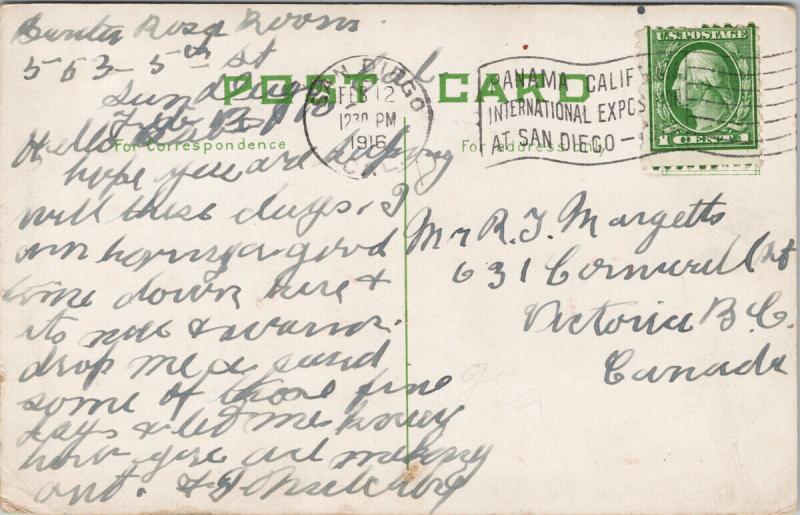 Rosa Rooms
563 - 5th St
San Diego Cal
Feb 12 1916
Hello
hope you are
well these days. I
am having a good
time down here &
its nice & warm.
drop me a
some of those fine
days & let me know
how you are making
out.
POST CARD
For Correspondence
For address only
SAN DIEGO
FEB 12
1230 PM
1916
CAL.
PANAMA CALIF
INTERNATIONAL EXPOS
AT SAN DIEGO -
U.S. POSTAGE
1 CENT 1
Mr R. J. Margetts
631 Cornwall St
Victoria B.C.
Canada